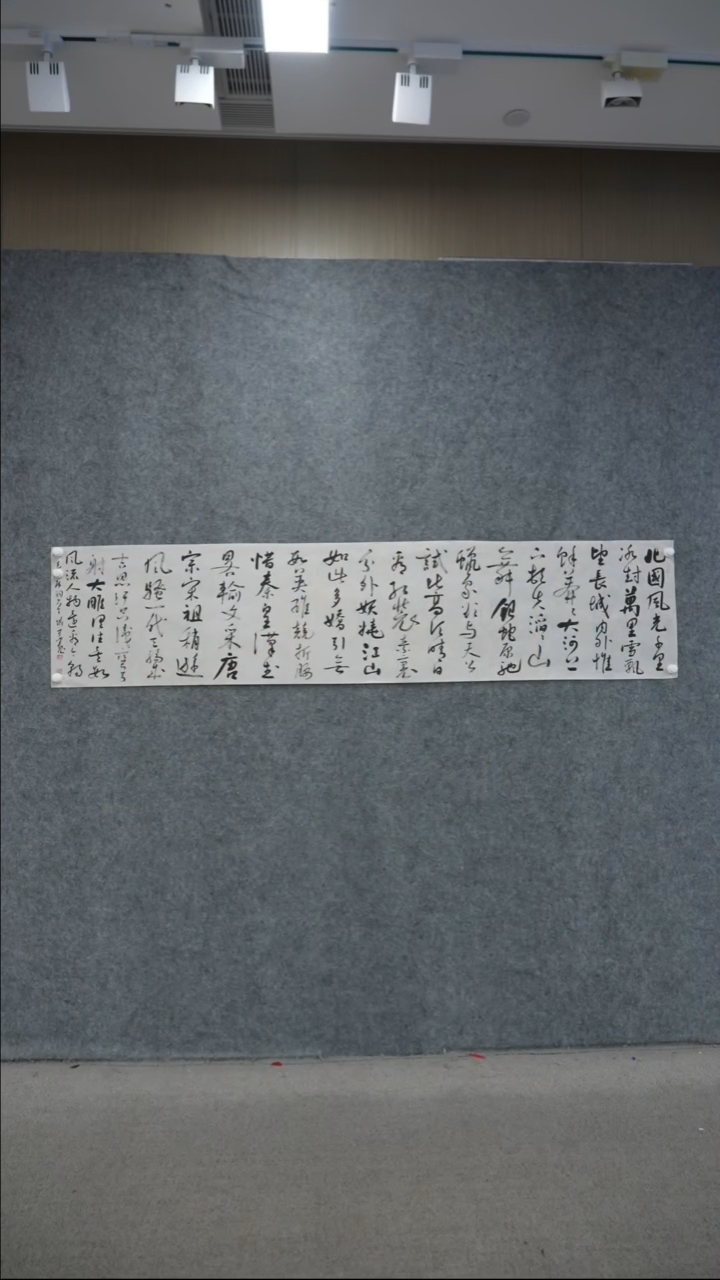 北國风光千里
冰封萬里雪飄
望長城内外惟
餘莽〻大河上
下頓失滔〻山
舞銀蛇原馳
蠟象欲与天公
試比高须晴日
看红裝素裹
分外妖娆江山
如此多嬌引無
数英雄競折腰
惜秦皇漢武
畧輸文采唐
宗宋祖稍遜
风騷一代天驕成
吉思汗只識彎弓
射大雕俱往矣数
风流人物還看今朝